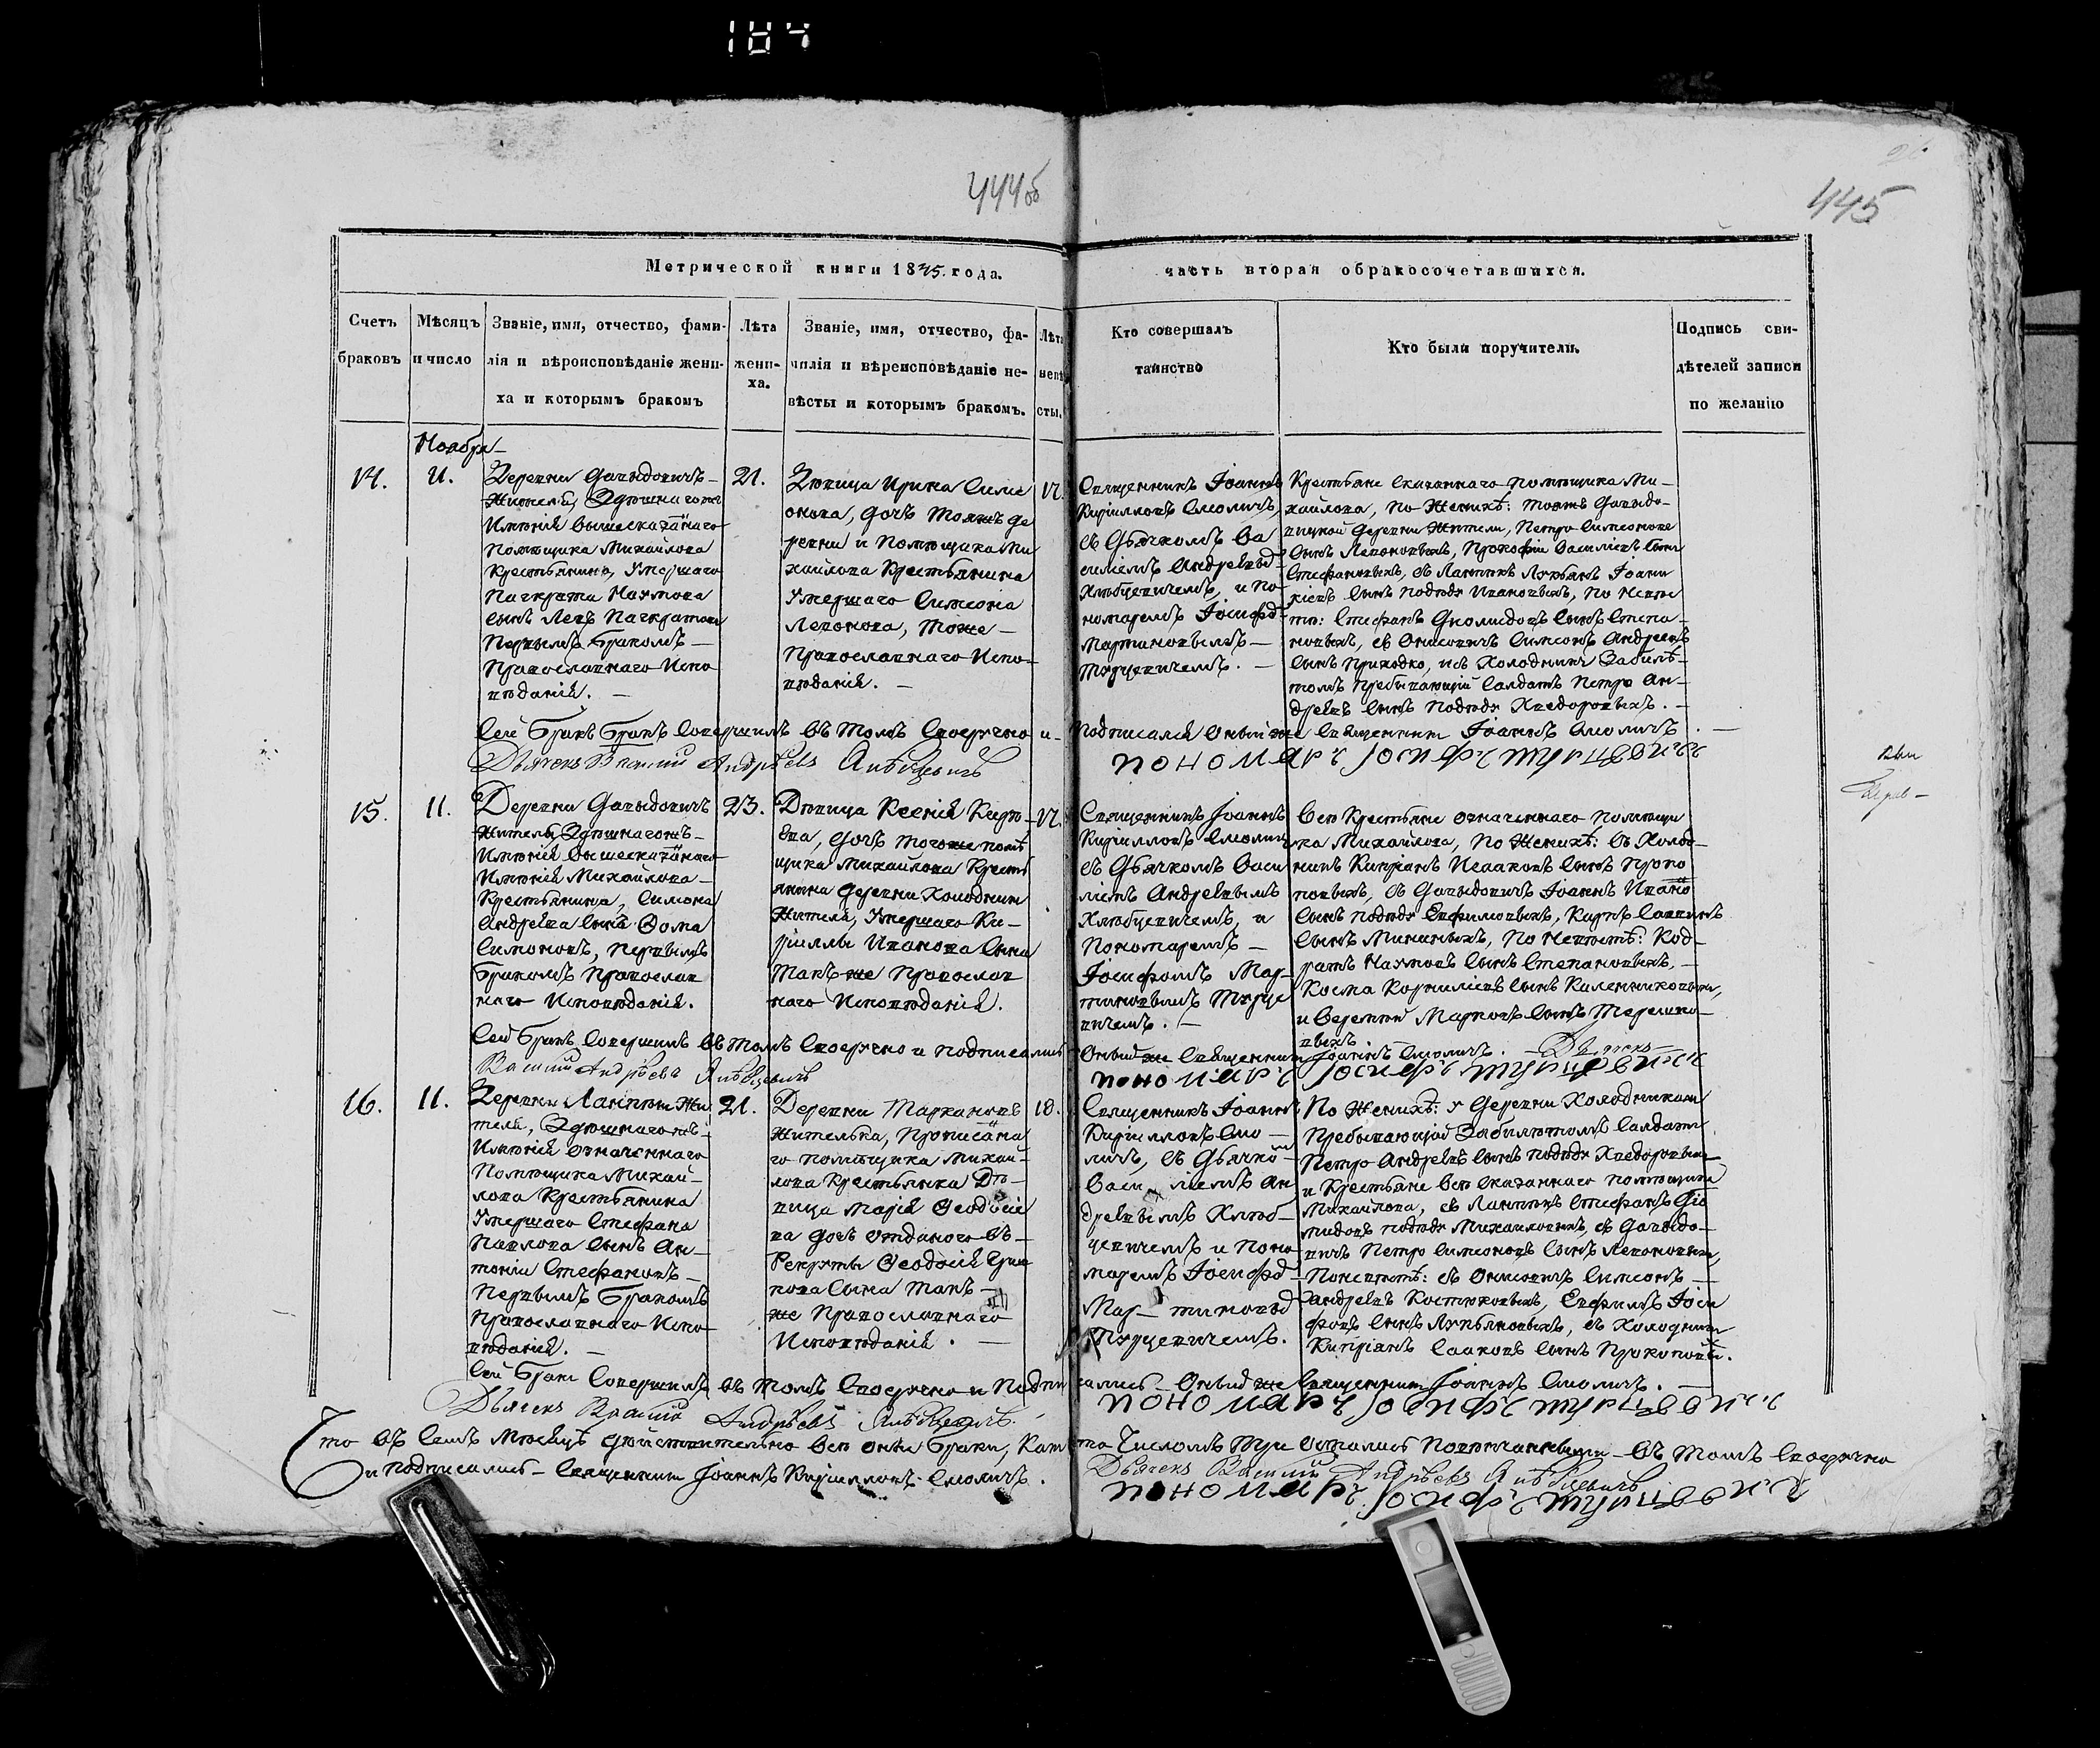 184
444об
445
Метрической книги 1845. года.
часть вторая обракосочетавшихся.
Счетъ браковъ
Мѣсяцъ и число
Званіе, имя, отчество, фами-
лія и вѣроисповѣданіе жени-
ха и которымъ бракомъ
Лѣта
жени-
ха.
Званіе, имя, отчество, фа-
милія и вѣреисповѣданіе не-
вѣсты и которымъ бракомъ.
Лѣта
невѣ
сты.
Кто совершалъ
таинство
Кто были поручители.
Подпись сви-
дѣтелей записи
по желанію
Ноября
14.
11.
Деревни Давыдовичъ
Житель, Здѣшнягожъ
Имѣнія вышесказаннаго
Помѣщика Михайлова
Крестьянина, Умершаго
Панкрата Наумова
сынъ Левъ Панкратовъ
Первымъ бракомъ
Православнаго Испо
вѣданія.
21.
Дѣвица Ирина Симе
онова, дочь тояжъ де
ревни и Помѣщика Ми
хайлова Крестьянина
Умершаго Симеона
Леонова, тоже
Православнаго Испо
вѣданія.
17.
Священникъ Іоаннъ
Кирилловъ Смоличъ,
съ Дьячкомъ Ва
силіемъ Андреевы
Хлѣбцевичемъ, и По
номаремъ Іосифо
Мартиновымъ
Турцевичемъ.
Крестьяне сказаннаго помѣщика Ми-
хайлова, по Женихѣ: тояжъ Давыдо-
вицкой деревни Жители, Петро Симеоновъ
сынъ, Прокофій Василіевъ сынъ
Стефановыхъ, съ Лаппокъ Лукьянъ Іоанн
кіевъ сынъ подюдя Ивановыхъ, по Невѣс
тѣ: Стефанъ Діомидовъ сынъ Степа-
новыхъ, съ Онисковичъ Симеонъ Андреевъ
сынъ Приходко, изъ Холодникъ Забилѣ-
томъ пребывающій Салдатъ Петро Ан-
дреевъ сынъ подюдя Хведоровыхъ.
Сей бракъ бракъ совершилъ въ томъ своеручно и подписался онъ же Священникъ Іоаннъ Смоличъ.
Дьячекъ Василій Андрѣевъ Хлѣбцевичъ
пономарь Іосифъ Турцевичъ
15.
11.
Деревни Давыдовичъ
Житель, Здѣшнягожъ
Имѣнія вышесказаннаго
Имѣнія Михайлова
Крестьянина, Симона
Андреева сынъ Ѳома
Симоновъ, первымъ
бракомъ Православ
наго Исповѣданія.
23.
Дѣвица Ксенія Кирил
ова, дочь тогоже помѣ
щика Михайлова Кресть
янина деревни Холодникъ
Жителя, Умершаго Ки-
риллы Иванова сына
такъ же Православ
наго Исповѣданія.
17.
Священникъ Іоаннъ
Кирилловъ Смоличъ
съ Дьячкомъ Васи
ліемъ Андреевымъ
Хлѣбцевичемъ, и
Пономаремъ
Іосифомъ Мар-
тиновымъ Турце
вичемъ.
Всѣ Крестьяне означеннаго помѣщи
ка Михайлова, по Женихѣ: съ Холод-
никъ Кипріанъ Исааковъ сынъ Проко
повыхъ, съ Давыдовичъ Іоаннъ Ивано
сынъ подюдя Евфимовыхъ, Карпъ Саввинъ
сынъ Мининыхъ, по Невѣстѣ: Код-
ратъ Наумовъ сынъ Степановыхъ,
Косма Корниліевъ сынъ,
и Веремѣй Марковъ сынъ Терешко-
выхъ
Сей бракъ совершилъ въ томъ своеручно и подписались онъ же Священникъ Іоаннъ Смоличъ. Дьячекъ
Василій Андрѣевъ Хлѣбцевичъ
пономарь Іосифъ Турцевичъ
16.
11.
Деревни Лаппокъ Жи
тель, Здѣшнягожъ
Имѣнія означеннаго
Помѣщика Михай-
лова Крестьянина
Умершаго Стефана
Павлова сынъ Ан-
тоній Стефановъ
Первымъ бракомъ
Православнаго Испо
вѣданія.
21.
Деревни Маркановъ
Жителька, прописана
го помѣщика Михай-
лова Крестьянка Дѣ-
вица Марія Ѳеодосіе
ва дочь отданого въ
Рекруты Ѳеодосія
сына такъ
же Православнаго
Исповѣданія.
18.
Священникъ Іоаннъ
Кирилловъ Смо
личъ, съ Дьячко
Васи ліемъ Ан
дреевымъ Хлѣб-
цевичемъ и Поно
маремъ Іосифо
Мар- тиновы
Турцевичемъ.
По Женихѣ: у деревни Холодникахъ
Пребывающій Забилѣтомъ Салдатъ
Петро Андреевъ сынъ подюдя Хведоровыхъ
и Крестьяне всѣ сказаннаго помѣщика
Михайлова, съ Лаппокъ Стефанъ Діо
мидовъ подюдя Михайловыхъ, съ Давыдо-
вичъ Петро Симеоновъ сынъ,
По невѣстѣ: съ Онисковичъ Симеонъ
Андреевъ Костюковыхъ, Евфимъ Іоси
фовъ сынъ Лукьяновыхъ, съ Холодникъ
Кипріанъ Сааковъ сынъ Прокопов.
Сей бракъ совершилъ въ томъ своеручно и подписались Онъ же Священникъ Іоаннъ Смоличъ.
Дьячекъ Василій Андрѣевъ Хлѣбцевичъ.
пономарь Іосифъ Турцевичъ
Что въ семъ Мѣсяцѣ дѣйствительно всѣ оные браки, числомъ три остались Повѣнчанными въ томъ своеручно
и подписались Священникъ Іоаннъ Кирилловъ Смоличъ.
Дьячекъ Василій Андрѣевъ Хлѣбцевичъ
пономарь Іосифъ Турцевичъ